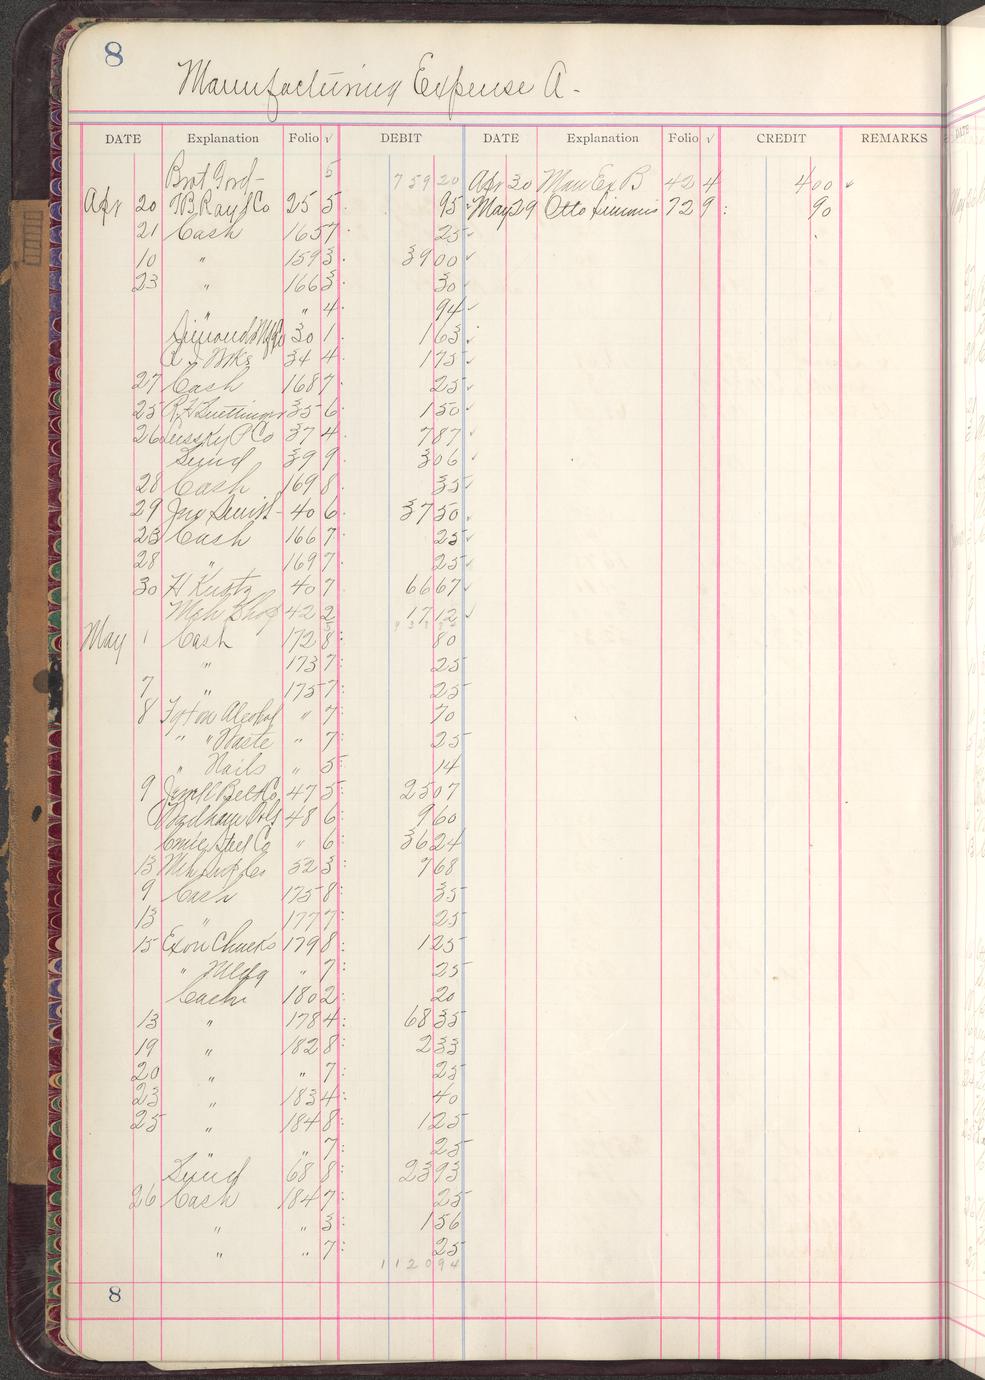 8
Manufacturing Expense A-
DATE Explanation Folio √ DEBIT DATE Explanation Folio √ CREDIT REMARKS
Brot Ford- 5 759 20 Apr 30 Man Ex B 42 4 4 00
Apr 20 WB Ray & Co 25 5 95 May 29 Otto 72 9 90
21 Cash 165 7 25
10 " 159 3 39 00
23 " 166 3 30
" 4 94
Simonds Mfg Co 30 1 1 63
34 4 1 75
27 Cash 168 7 25
25 R. H. Luettinger 35 6 1 50
26 Lussky P Co 37 4 7 87
Lund 39 9 3 06
28 Cash 169 8 35
29 Jno Smith 40 6 37 50
23 Cash 166 7 25
28 " 169 7 25
30 H Kurtz 40 7 66 67
Mch Shop 42 2 17 12
May 1 Cash 172 8 80
" 173 7 25
7 " 175 7 25
8 Alcohol " 7 70
" " Waste " 7 25
" Nails " 5 14
9 Belt Co 47 5 25 07
48 6 9 60
Steel Co " 6 36 24
13 Mch Co 52 3 7 68
9 Cash 175 8 35
13 " 177 7 25
15 Chucks 179 8 1 25
" Mldg " 7 25
Cash 180 2 20
13 " 178 4 68 35
19 " 182 8 2 33
20 " " 7 25
23 " 183 4 40
25 " 184 8 1 25
" 7 25
Lund 68 8 23 93
26 Cash 184 7 25
" " 3 1 56
" " 7 25
1120 94
8